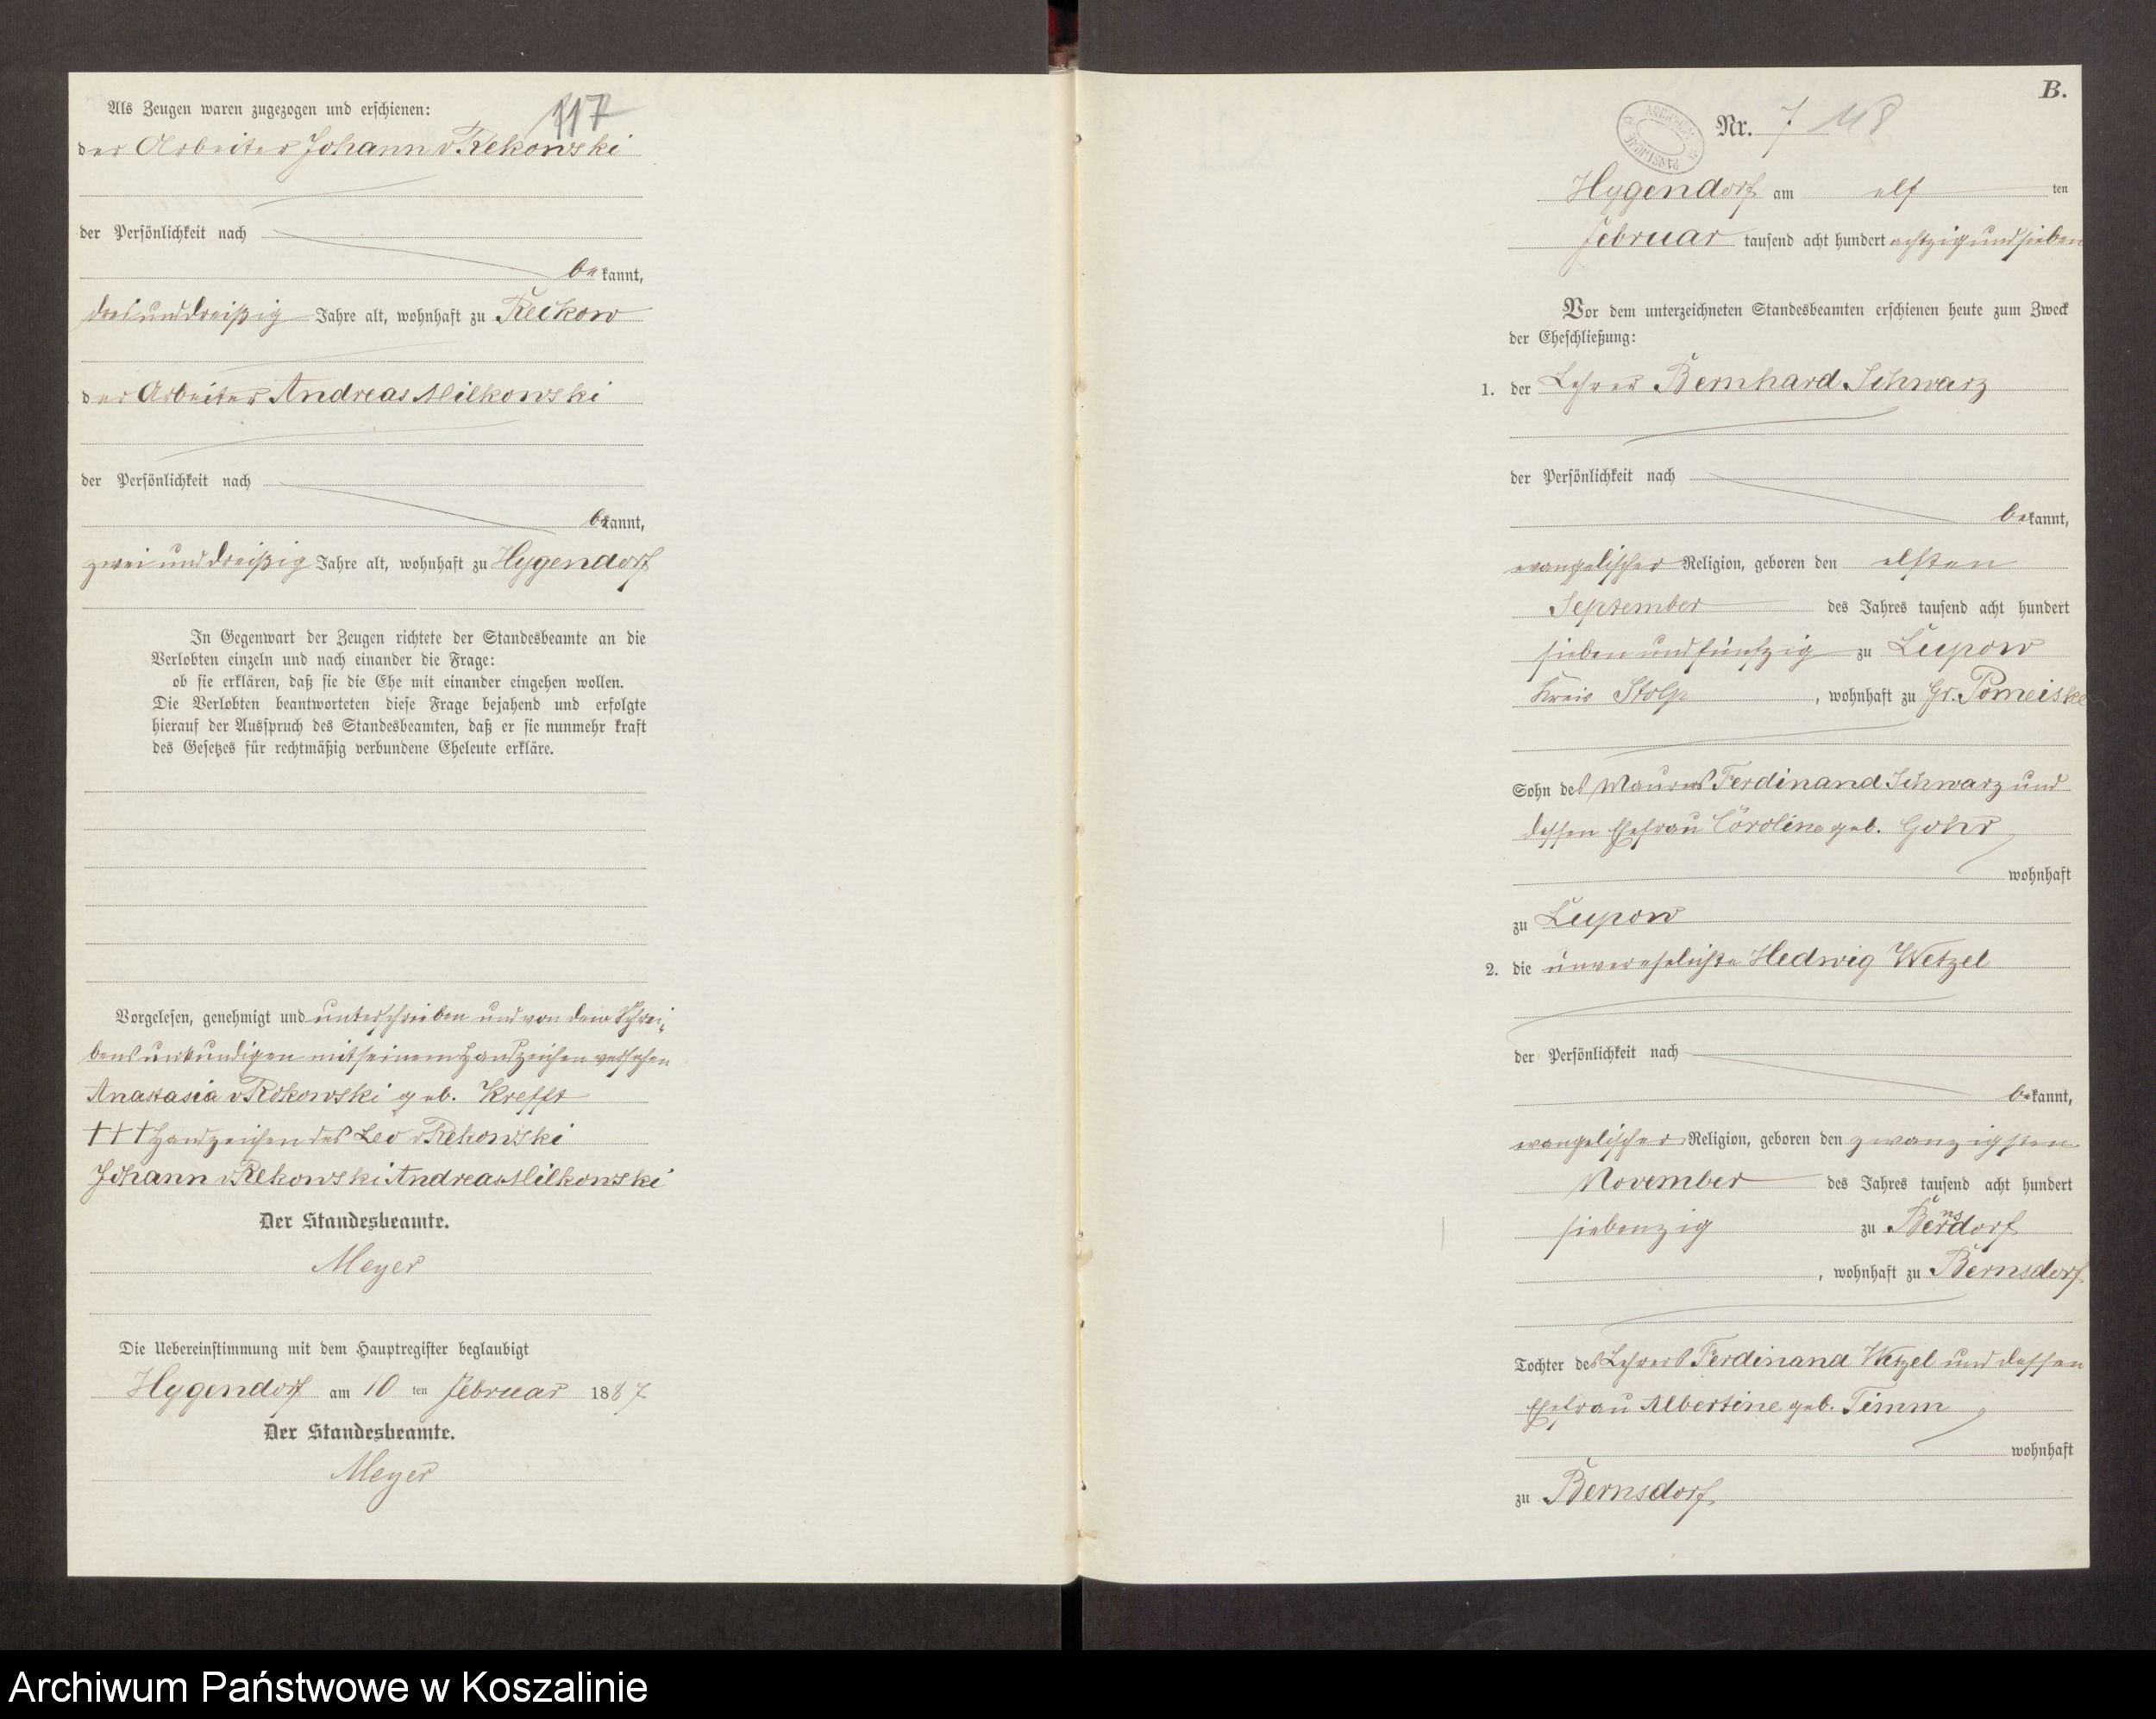 117
Als Zeugen waren zugezogen und erschienen:
der Arbeiter Johann v Rekowski
der Persönlichkeit nach
bekannt,
drei und dreißig Jahre alt, wohnhaft zu Reckow
der Arbeiter Andreas Milkowski
der Persönlichkeit nach
bekannt,
zwei und dreißig Jahre alt, wohnhaft zu Hygendorf
In Gegenwart der Zeugen richtete der Standesbeamte an die
Verlobten einzeln und nach einander die Frage:
ob sie erklären, daß sie die Ehe mit einander eingehen wollen.
Die Verlobten beantworteten diese Frage bejahend und erfolgte
hierauf der Ausspruch des Standesbeamten, daß er sie nunmehr kraft
des Gesetzes für rechtmäßig verbundene Eheleute erkläre.
Vorgelesen, genehmigt und unterschrieben und von dem Schrei-
bens unkundigen mit seinem Handzeichen versehen
Anastasia v Rekowski geb. Krefft
+++ Handzeichen des Leo v Rekowski
Johann v Rekowski Andreas Milkowski
Der Standesbeamte.
Meyer
Die Uebereinstimmung mit dem Hauptregister beglaubigt
Hygendorf am 10 ten Februar 1887
Der Standesbeamte.
Meyer
B.
Nr. 7 118
Hygendorf am elf ten
Februar tausend acht hundert achtzig und sieben
Vor dem unterzeichneten Standesbeamten erschienen heute zum Zweck
der Eheschließung:
1. der Lehrer Bernhard Schwarz
der Persönlichkeit nach
bekannt,
evangelischer Religion, geboren den elften
September des Jahres tausend acht hundert
sieben und fünfzig zu Lupow
Kreis Stolp, wohnhaft zu Gr. Pomeiske
Sohn des Maurers Ferdinand Schwarz und
dessen Ehefrau Caroline geb. Gohr
wohnhaft
zu Lupow
2. die unverehelichte Hedwig Wetzel
der Persönlichkeit nach
bekannt,
evangelischer Religion, geboren den zwanzigsten
November des Jahres tausend acht hundert
siebenzig zu Bernsdorf
, wohnhaft zu Bernsdorf
Tochter des Lehrers Ferdinand Wetzel und dessen
Ehefrau Albertine geb. Timm
wohnhaft
zu Bernsdorf
Archiwum Państwowe w Koszalinie